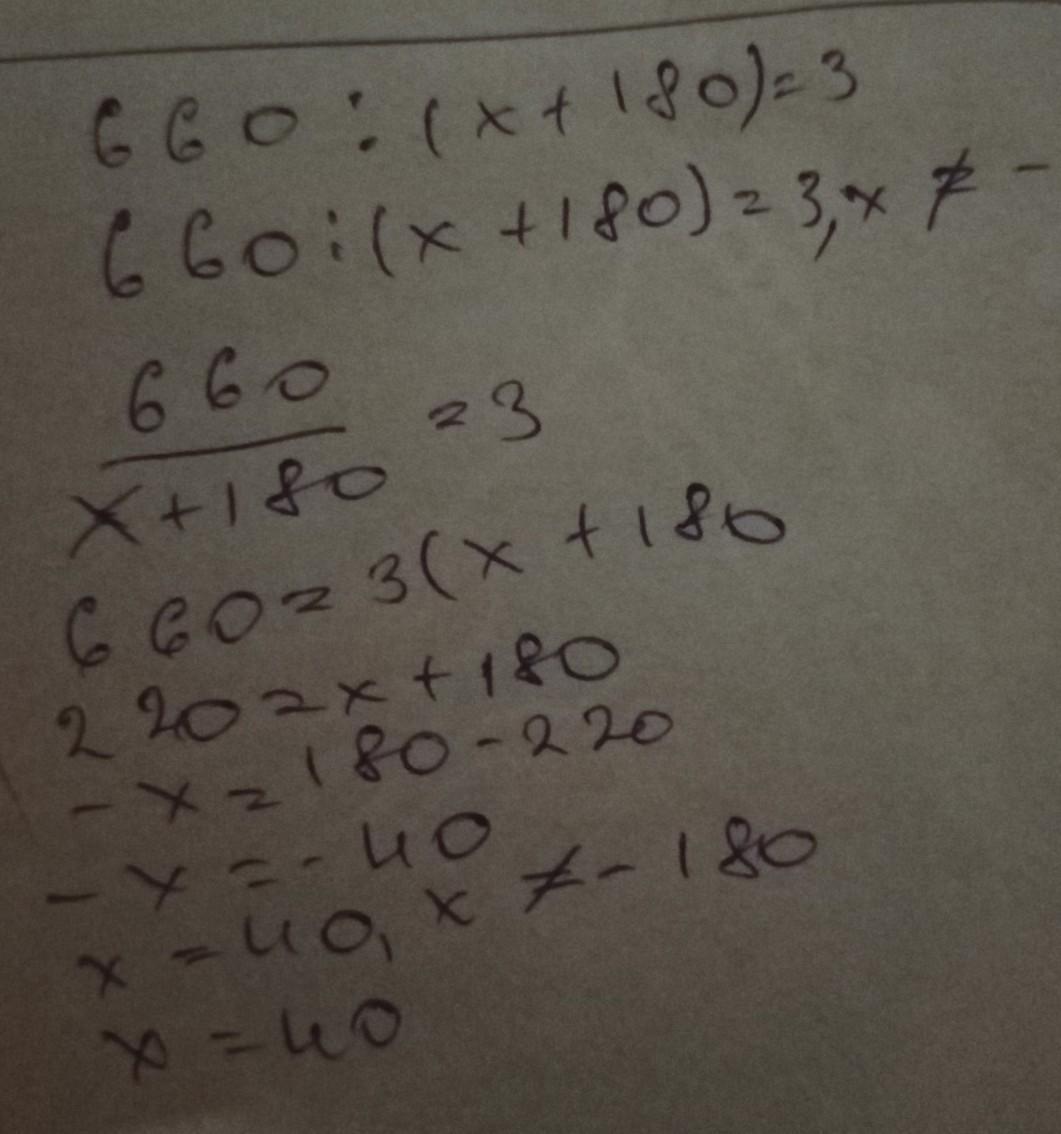 660 : (x + 180) = 3
660 : (x + 180) = 3, x ≠ -
660
x + 180
= 3
660 = 3(x + 180
220 = x + 180
- x = 180 - 220
- x = - 40
x = 40, x ≠ - 180
x = 40